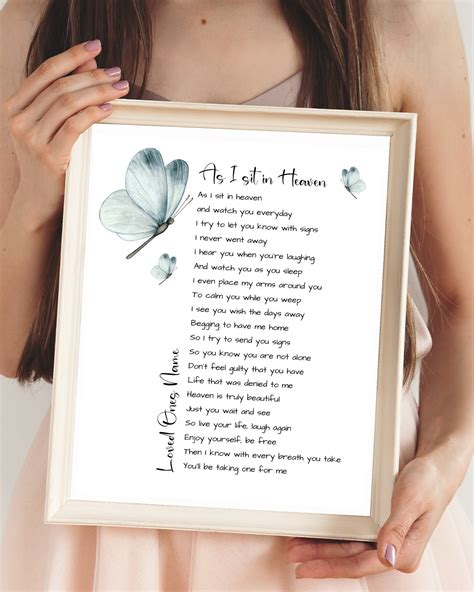 As I sit in Heaven
As I sit in heaven
and watch you everyday
I try to let you know with signs
I never went away
I hear you when you're laughing
And watch you as you sleep
I even place my arms around you
To calm you while you weep
I see you wish the days away
Begging to have me home
So I try to send you signs
So you know you are not alone
Don't feel guilty that you have
Life that was denied to me
Heaven is truly beautiful
Just you wait and see
So live your life, laugh again
Enjoy yourself, be free
Then I know with every breath you take
You'll be taking one for me
Loved Ones Name